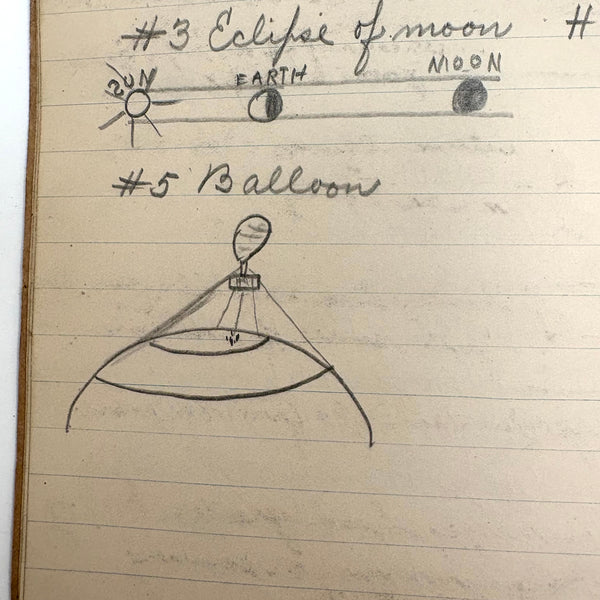 #3 Eclipse of moon #
SUN EARTH MOON
#5 Balloon